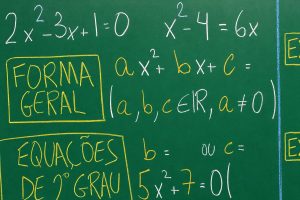 2x²-3x+1=0 x²-4=6x
FORMA GERAL
ax²+bx+c=
(a,b,c∈ℝ, a≠0)
EQUAÇÕES DE 2º GRAU
b= OU c=
5x²+7=0(